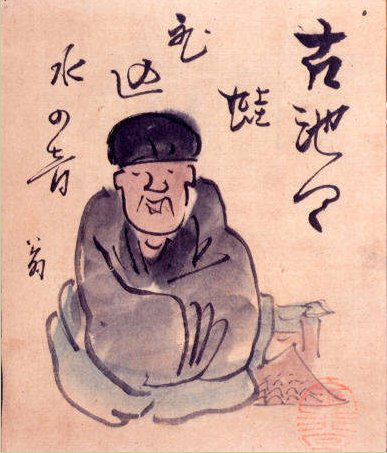 古池や
蛙
飛込
水の音
翁